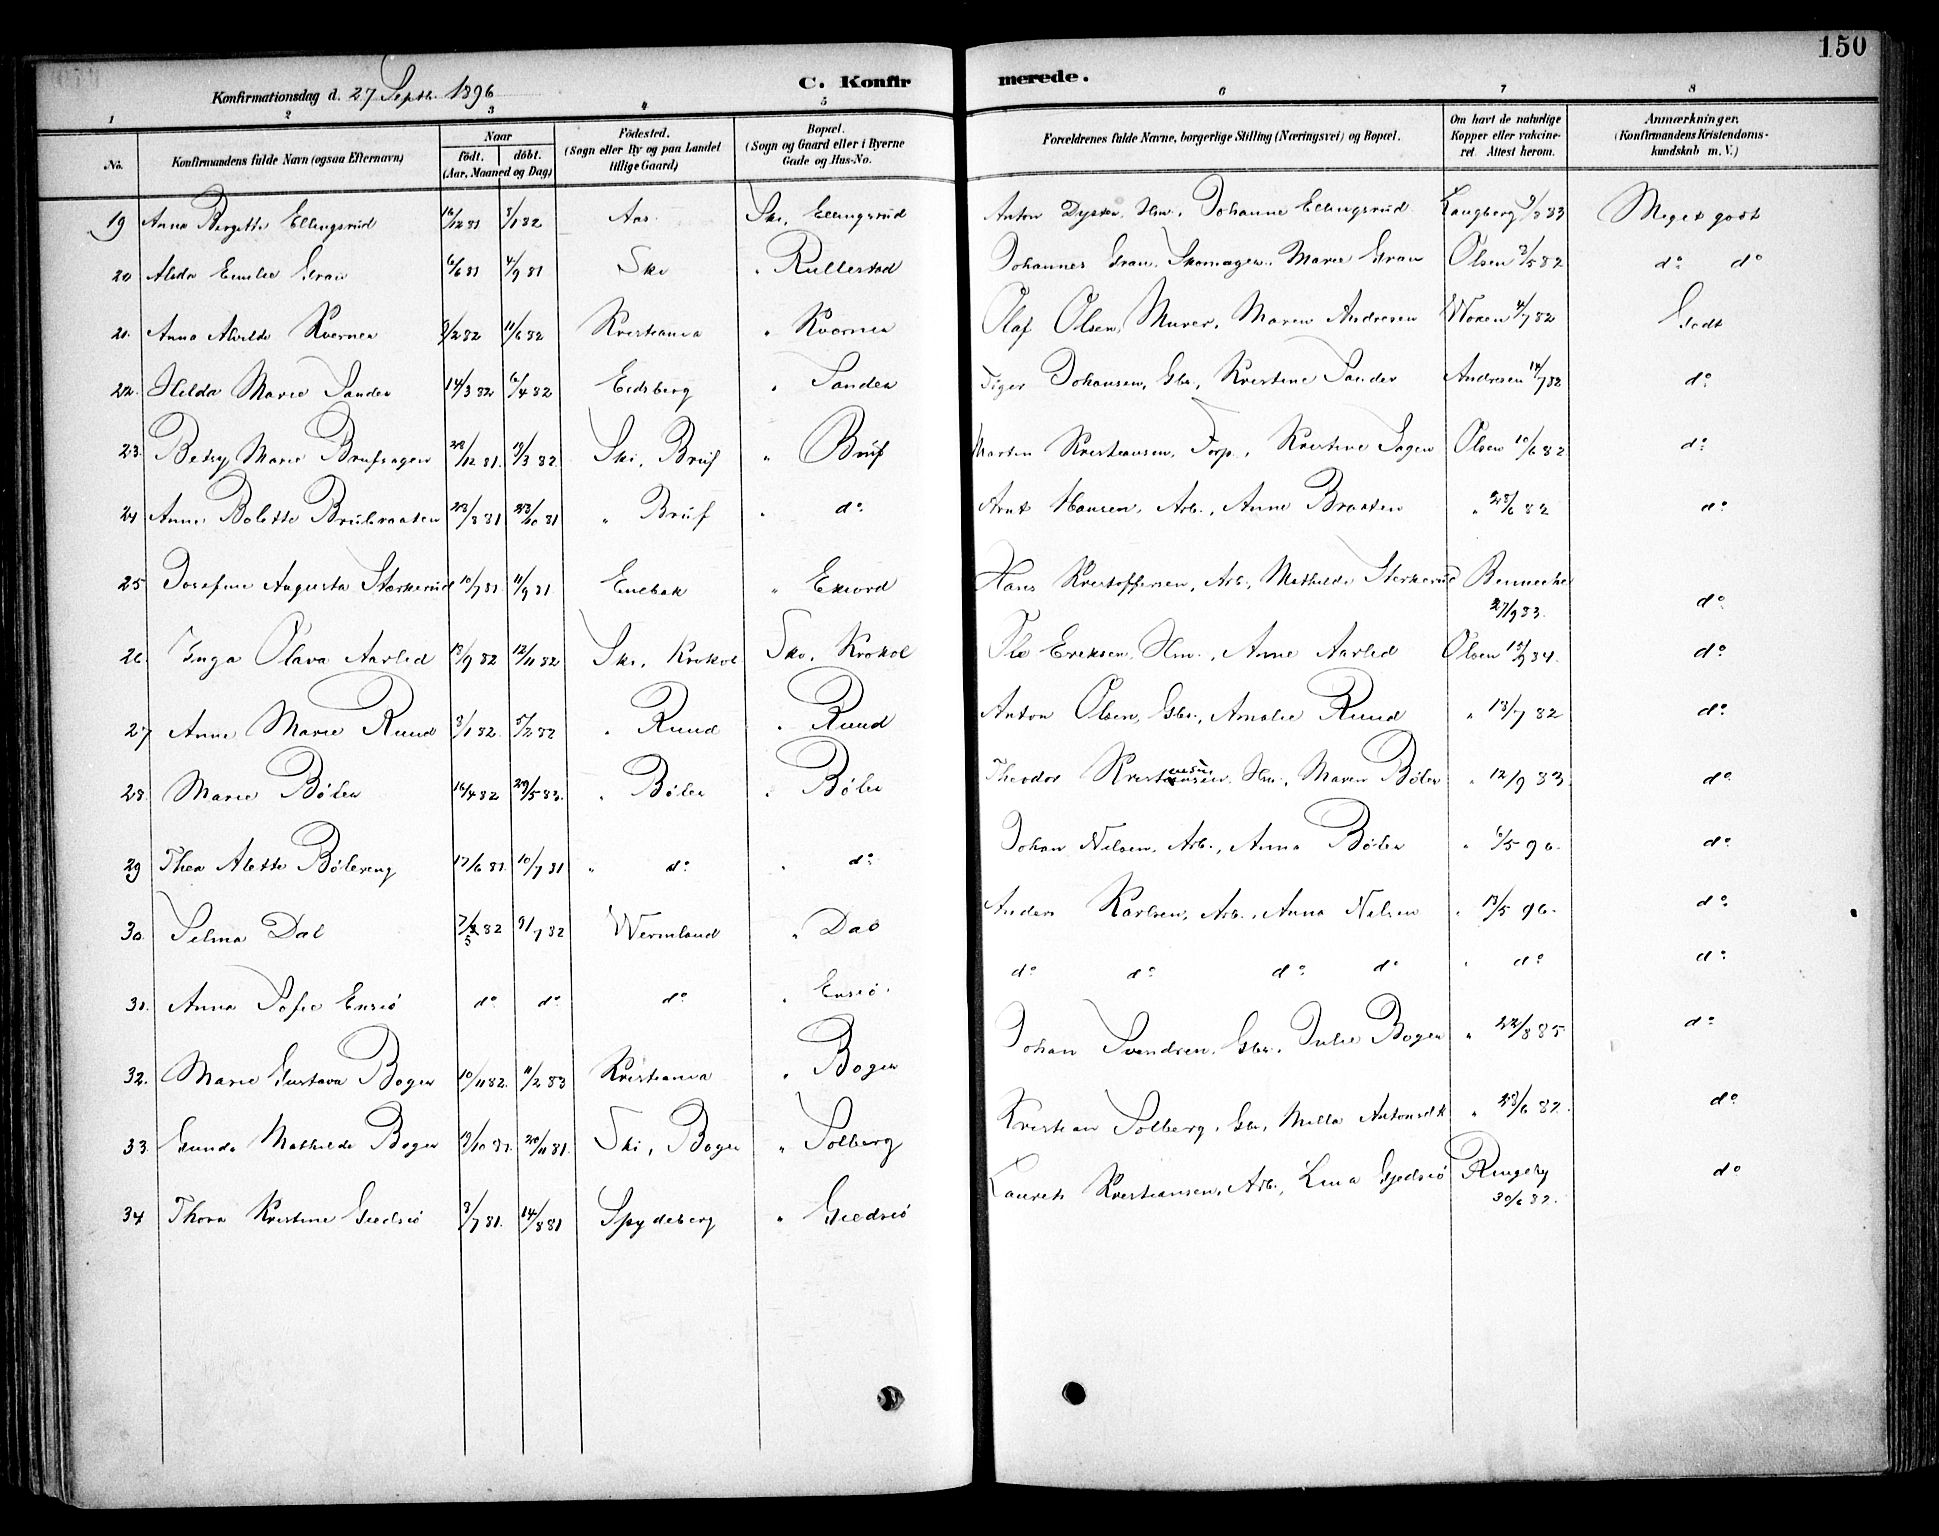 150
Konfirmationsdag d. 27 Septb. 1896
C. Konfirmerede.
1 2 3 4 5 6 7 8
No. | Konfirmandens fulde Navn (ogsaa Efternavn) | Naar födt. döbt. (Aar, Maaned og Dag) | Födested. (Sogn eller By og paa Landet tillige Gaard) | Bopæl. (Sogn og Gaard eller i Byerne Gade og Hus-No. | Forældrenes fulde Navne, borgerlige Stilling (Næringsvei) og Bopæl. | Om havt de naturlige Kopper eller vakcineret. Attest herom. | Anmærkninger. (Konfirmandens Kristendomskundskab m. V.)
19 Anna Bergitte Ellingsrud 16/12 81 8/1 82 Aas Ski, Ellingsrud Anton Dyster, Hm., Johanne Ellingsrud Langberg 9/8 83 Meget godt
20 Alida Emilie Gran 6/6 81 4/9 81 Ski " Rullestad Johannes Gran, Skomager, Marie Gran Olsen 2/5 82 do do
21. Anna Alvilde Kværner 3/2 82 11/6 82 Kristiania " Kværner Olaf Olsen, Murer, Maren Andresen 4/7 82 Godt
22. Hilda Marie Sander 14/3 82 6/4 82 Eidsberg " Sander Johansen, Gbr., Kristine Sander Andresen 14/7 82 do
23. Betsy Marie Brufsagen 28/12 81. 19/3 82 Ski, Bruf " Bruf Martin Kristiansen, Forp., Kristine Sagen Olsen 10/6 82 do
24 Anne Bolette Brubraaten 28/8 81 23/10 81 " Bruf " do Arnt Hansen, Arb., Anne Braaten " 28/6 82 do
25 Josefine Augusta Sterkerud 10/7 81. 11/9 81 Enebak " Ekjord Hans Kristoffersen, Arb., Mathilde Sterkerud Bennecke 27/9 83. do
26. Inga Olava Aarlid 13/9 82 12/11 82 Ski, Krokol Ski, Krokol Ole Eriksen, Hm., Anne Aarlid Olsen 15/9 84. do
27 Anne Marie Ruud 3/1 82. 5/2 82 " Ruud " Ruud Anton Olsen, Gbr., Amalie Ruud " 13/7 82 do
28. Marie Böler 16/4 82 29/5 83. " Böler " Böler Theodor Kristensen, Hm., Maren Böler " 12/9 83. do
29 Thea Alette Bölereng 17/6 81. 10/7 81 " do " do Johan Nilsen, Arb., Anna Böler " 6/5 96. do
30. Selma Dal 7/5 82 9/7 82 Wermland " Dal Anders Karlsen, Arb., Anna Nilsen " 13/5 96. do
31. Anna Sofie Ensiö do do do " Ensiö. do do do do " do do
32. Marie Gustava Boger 10/11 82. 11/2 83 Kristiania " Boger Johan Svendsen, Gbr., Julie Boger " 22/8 85. do
33. Gunda Mathilde Boger 19/10 81. 20/11 81. Ski, Boger " Solberg Kristian Solberg, Gbr, Milla Antonsdt " 28/6 82. do
34 Thora Kristine Giedsiö 3/7 81. 14/8 81 Spydeberg " Giedsiö Laurits Kristiansen, Arb., Lina Gjedsiö Ringeby 30/6 82. do